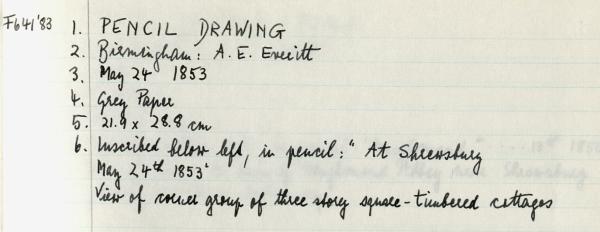 F641'83 1. PENCIL DRAWING
2. Birmingham: A. E. Everitt
3. May 24 1853
4. Grey Paper
5. 21.9 x 28.8 cm
6. Inscribed below left, in pencil: " At Shrewsbury
May 24th 1853'
View of corner group of three story square-timbered cottages